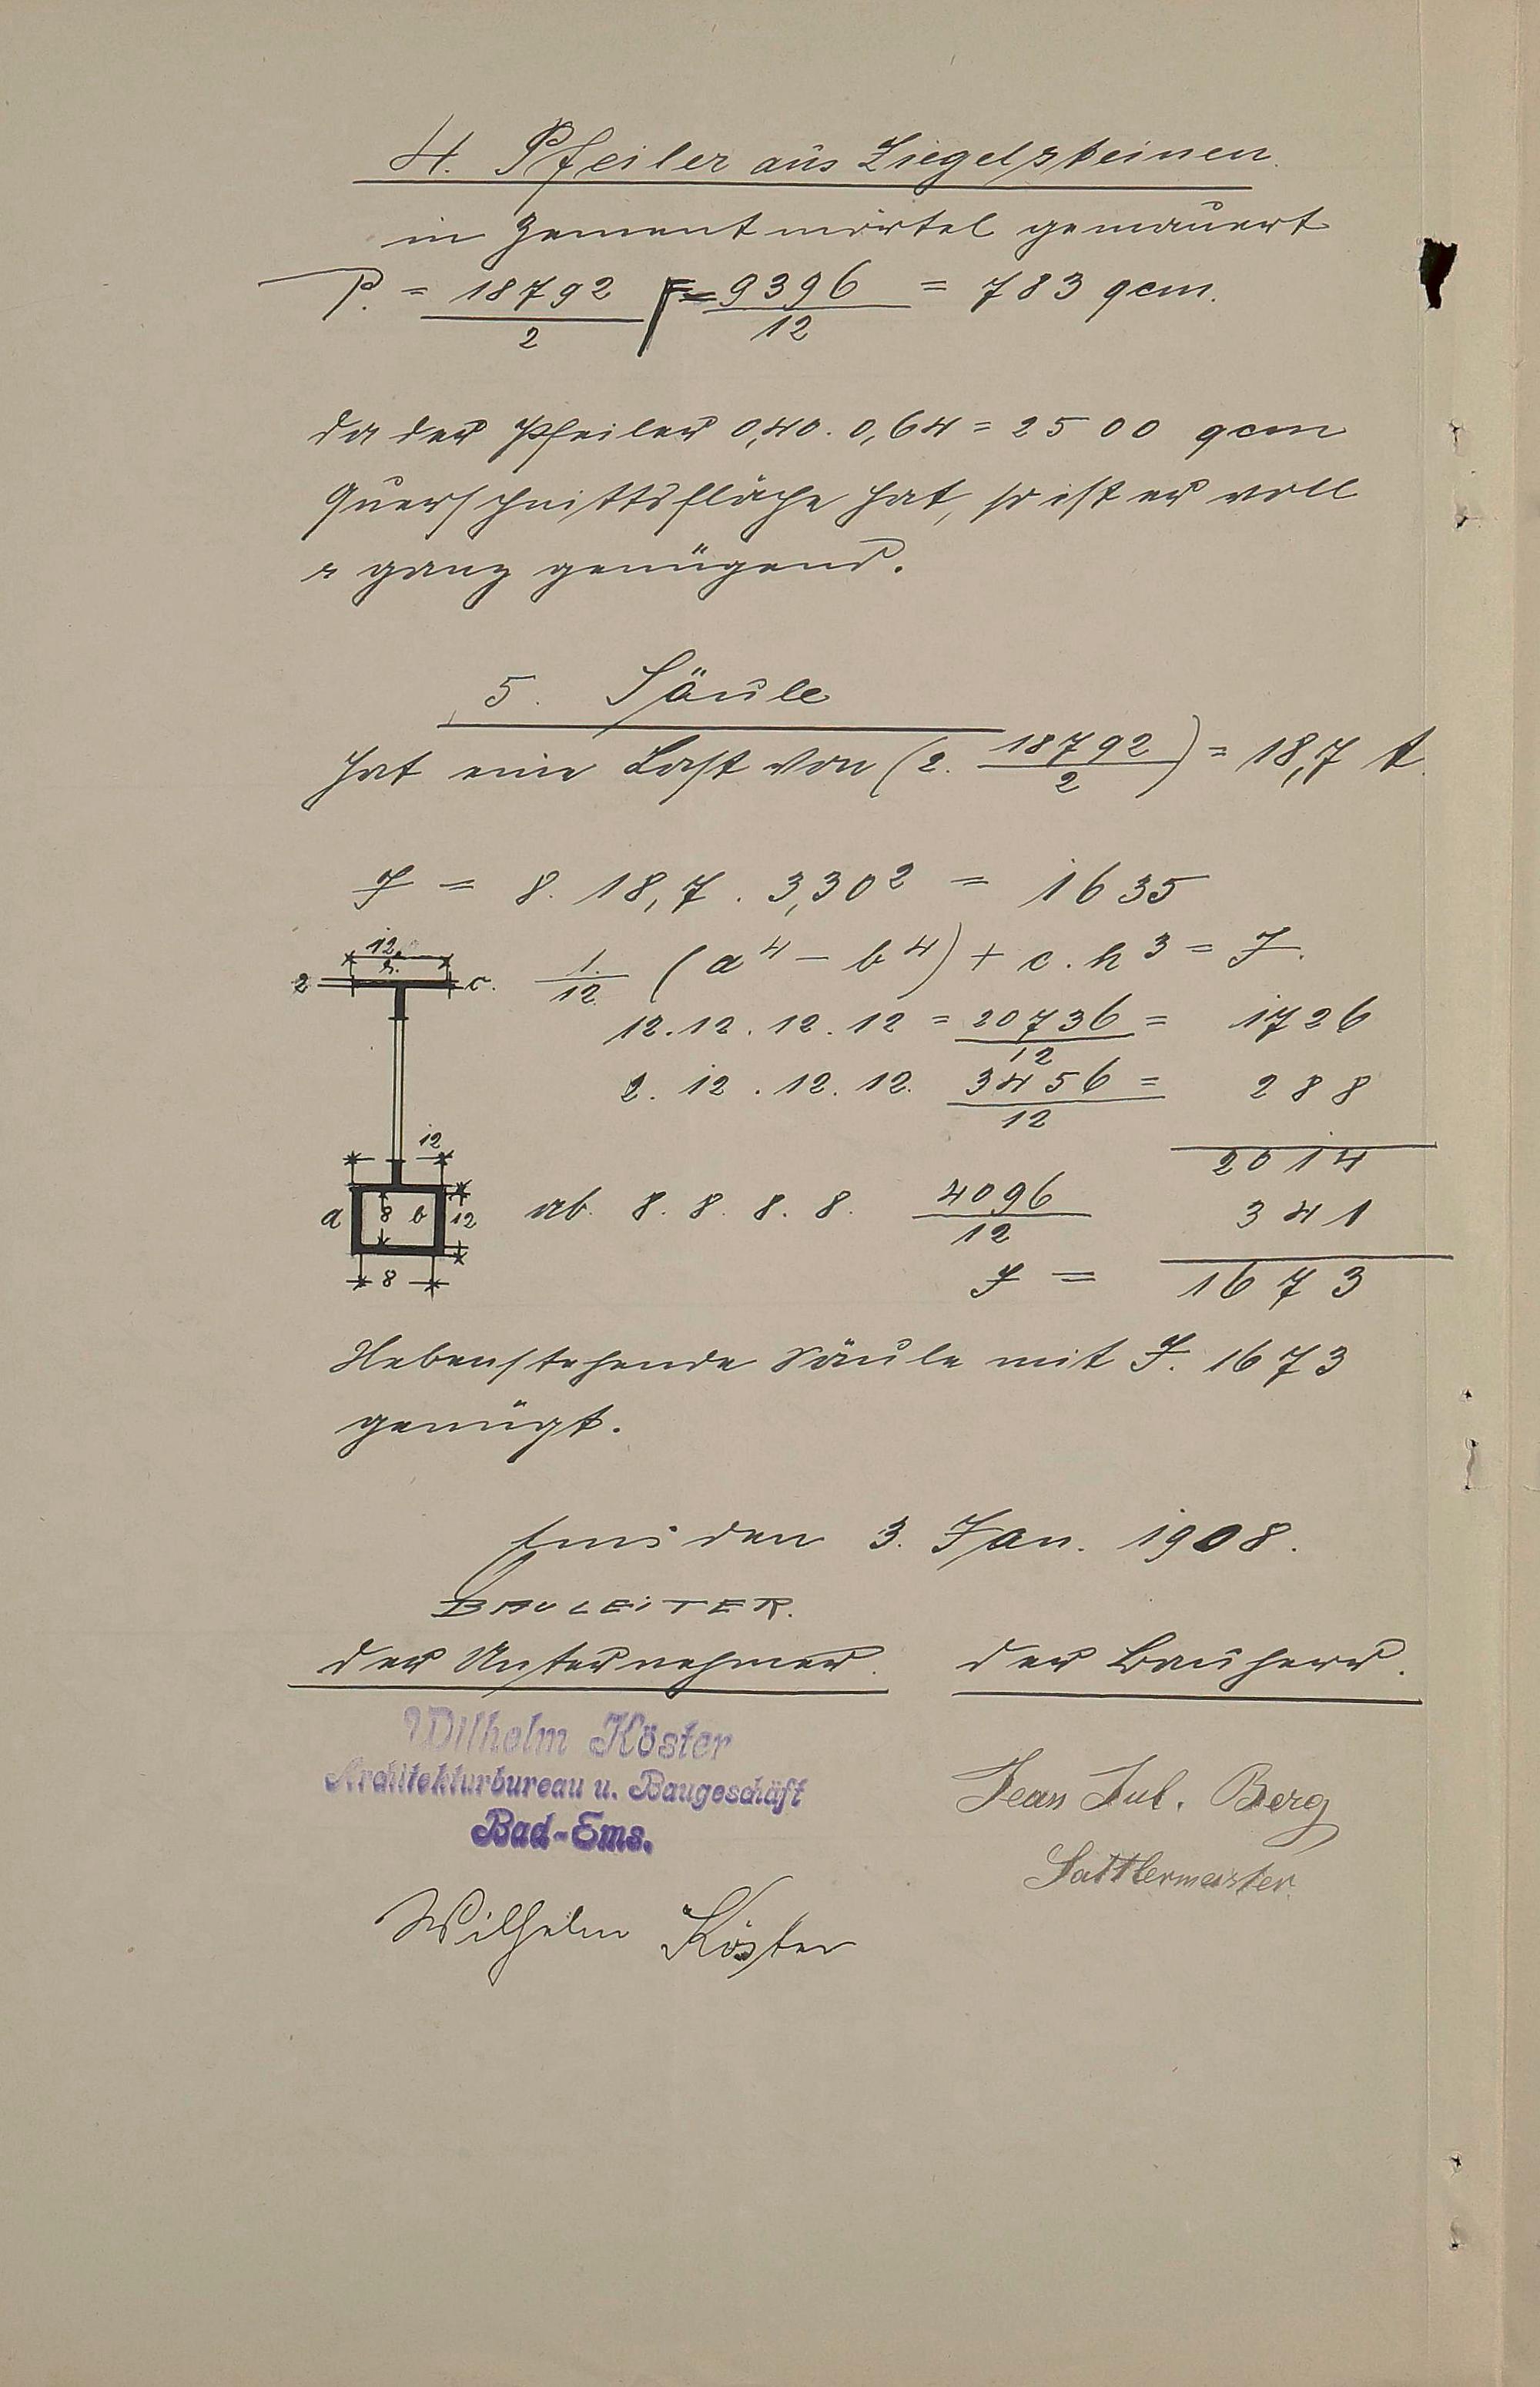 4. Pfeiler aus Ziegelsteinen.
in Zementmörtel gemauert
P. = 18792/2 F = 9396/12 = 783 qcm.
da der Pfeiler 0,40 . 0,64 = 2500 qcm
Querschnittsfläche hat, so ist er voll
u ganz genügend.
5. Säule
hat eine Last von (2. 18792/2) = 18,7 t.
J = 8. 18,7 . 3,30² = 1635
1/12 (a⁴ – b⁴) + c . h³ = J.
12. 12. 12. 12 = 20736/12 = 1726
2. 12 . 12. 12. 3456/12 = 288
2014
ab. 8. 8. 8. 8. 4096/12 341
J = 1673
12
h.
2 c.
12
a 8 b 12
8
Nebenstehende Säule mit J. 1673
genügt.
Ems den 3. Jan. 1908.
BAULEITER.
der Unternehmer. der Bauherr.
Wilhelm Köster
Architekturbureau u. Baugeschäft
Bad-Ems.
Jean Jul. Berg
Sattlermeister.
Wilhelm Köster